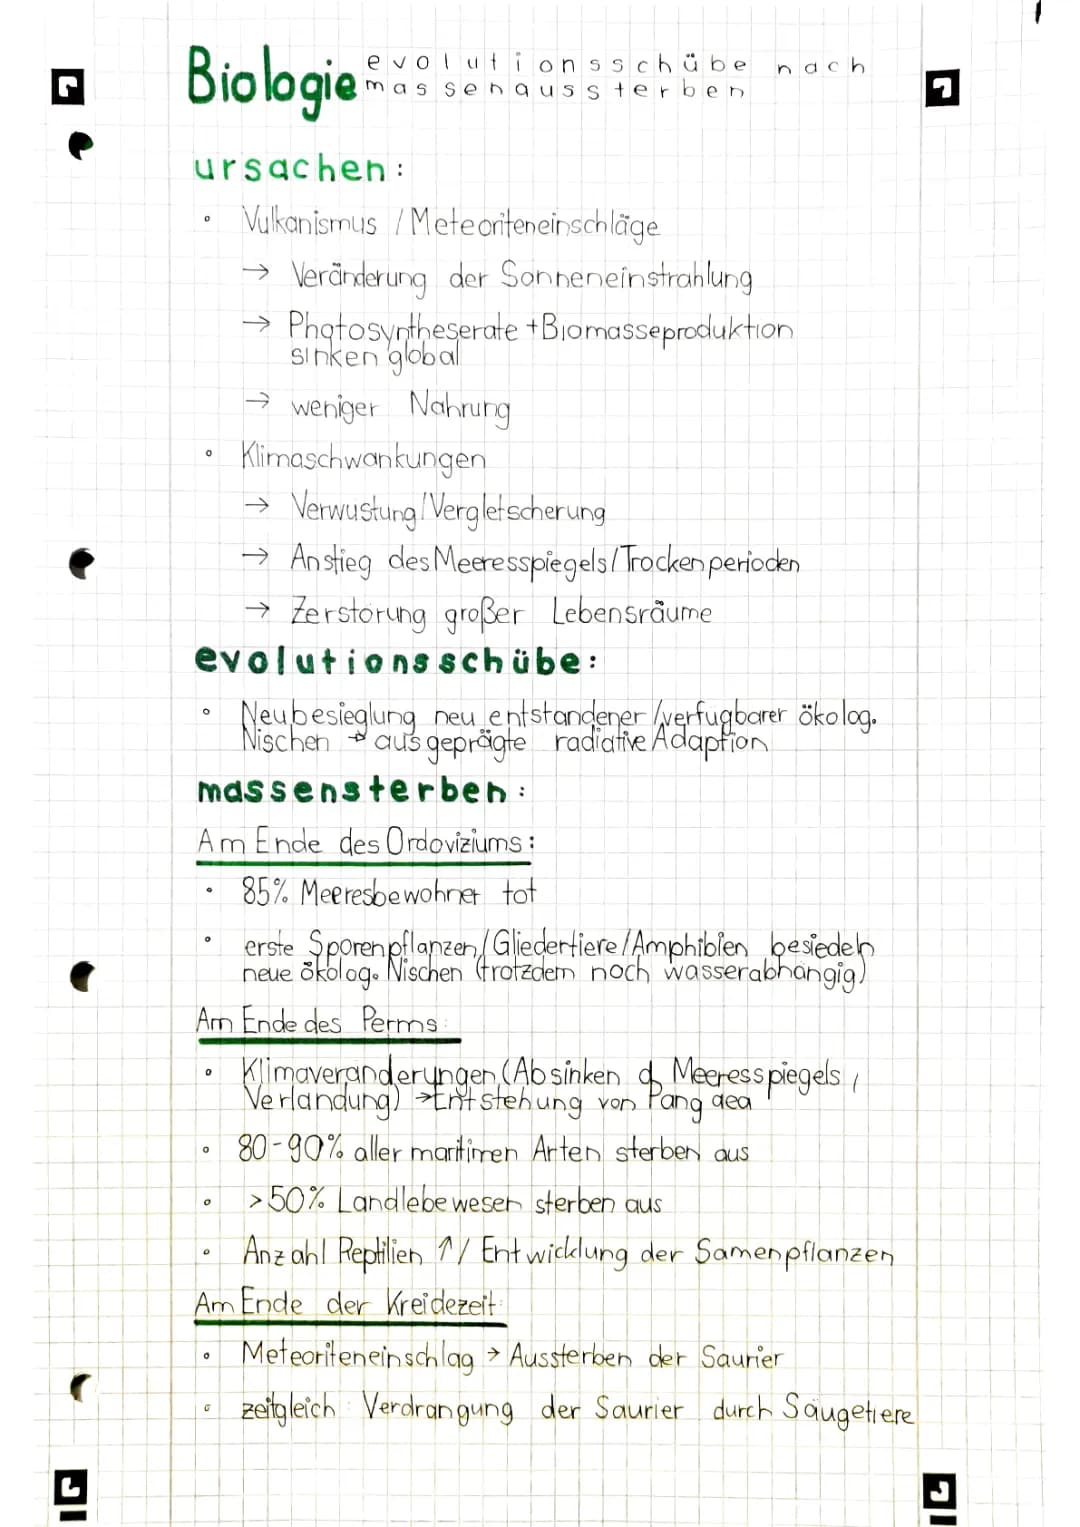 Biologie evolutionsschübe nach
massenaussterben
ursachen:
• Vulkanismus / Meteoriteneinschläge
→ Veränderung der Sonneneinstrahlung
→ Photosyntheserate + Biomasseproduktion
sinken global
→ weniger Nahrung
• Klimaschwankungen
→ Verwüstung/Vergletscherung
→ Anstieg des Meeresspiegels/Trockenperioden
→ Zerstörung großer Lebensräume
evolutionsschübe:
• Neubesieglung neu entstandener/verfügbarer ökolog.
Nischen → ausgeprägte radiative Adaption
massensterben:
Am Ende des Ordoviziums:
• 85% Meeresbewohner tot
• erste Sporenpflanzen/Gliedertiere/Amphibien besiedeln
neue ökolog. Nischen (trotzdem noch wasserabhängig)
Am Ende des Perms:
• Klimaveränderungen (Absinken d. Meeresspiegels,
Verlandung) → Entstehung von Pangaea
• 80-90% aller maritimen Arten sterben aus
• >50% Landlebewesen sterben aus
• Anzahl Reptilien ↑/ Entwicklung der Samenpflanzen
Am Ende der Kreidezeit:
• Meteoriteneinschlag → Aussterben der Saurier
• zeitgleich Verdrängung der Saurier durch Säugetiere